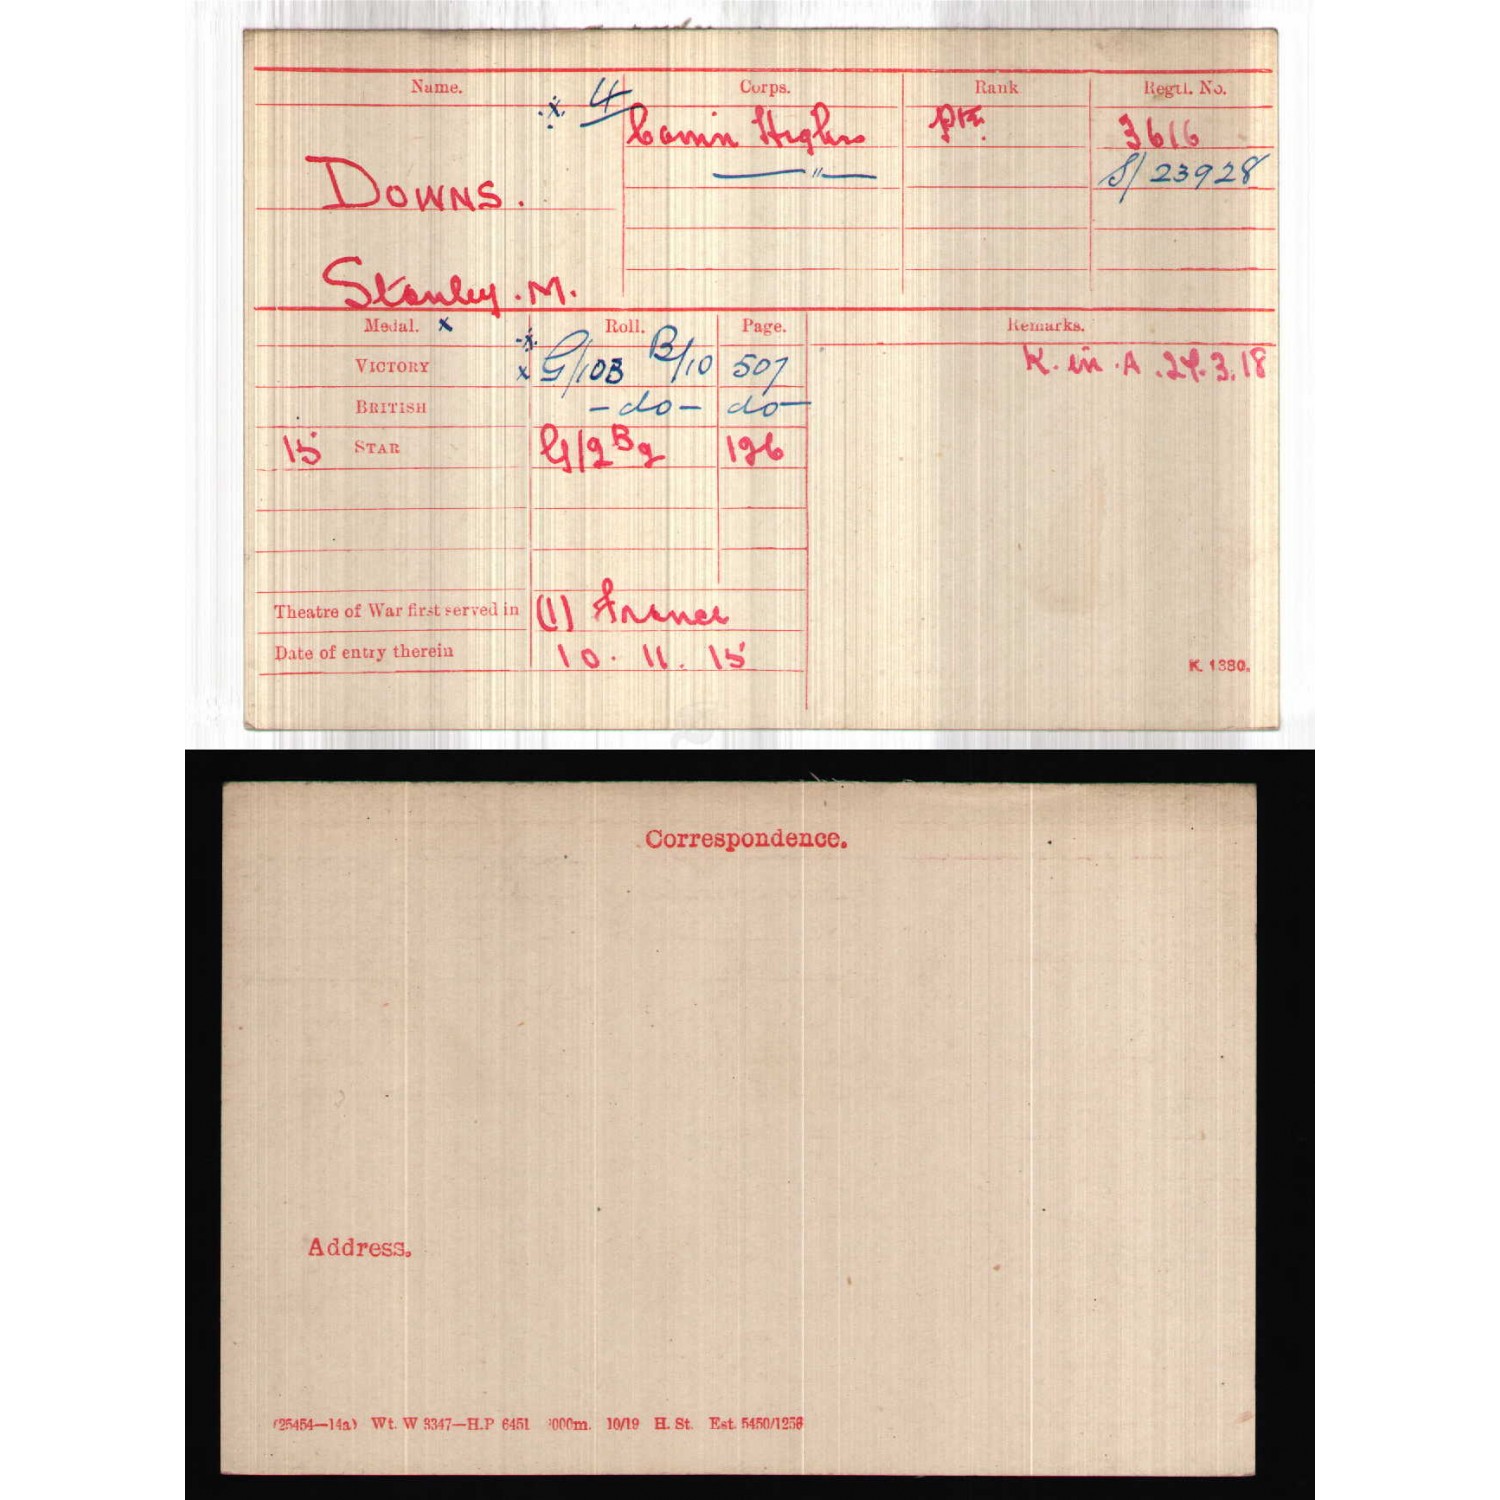 Name. Corps. Rank Regtl. No.
4 Camn Highrs Pte. 3616
" S/23928
DOWNS.
Stanley. M.
Medal. x Roll. Page. Remarks.
VICTORY x G/103 B/10 507 K. in A. 24.3.18
BRITISH -do- do-
15 STAR G/2 B2 126
Theatre of War first served in (1) France
Date of entry therein 10. 11. 15
K. 1380.
Correspondence.
Address.
(25454—14a) Wt. W 3347—H.P 6451 000m. 10/19 H. St. Est. 5450/1256